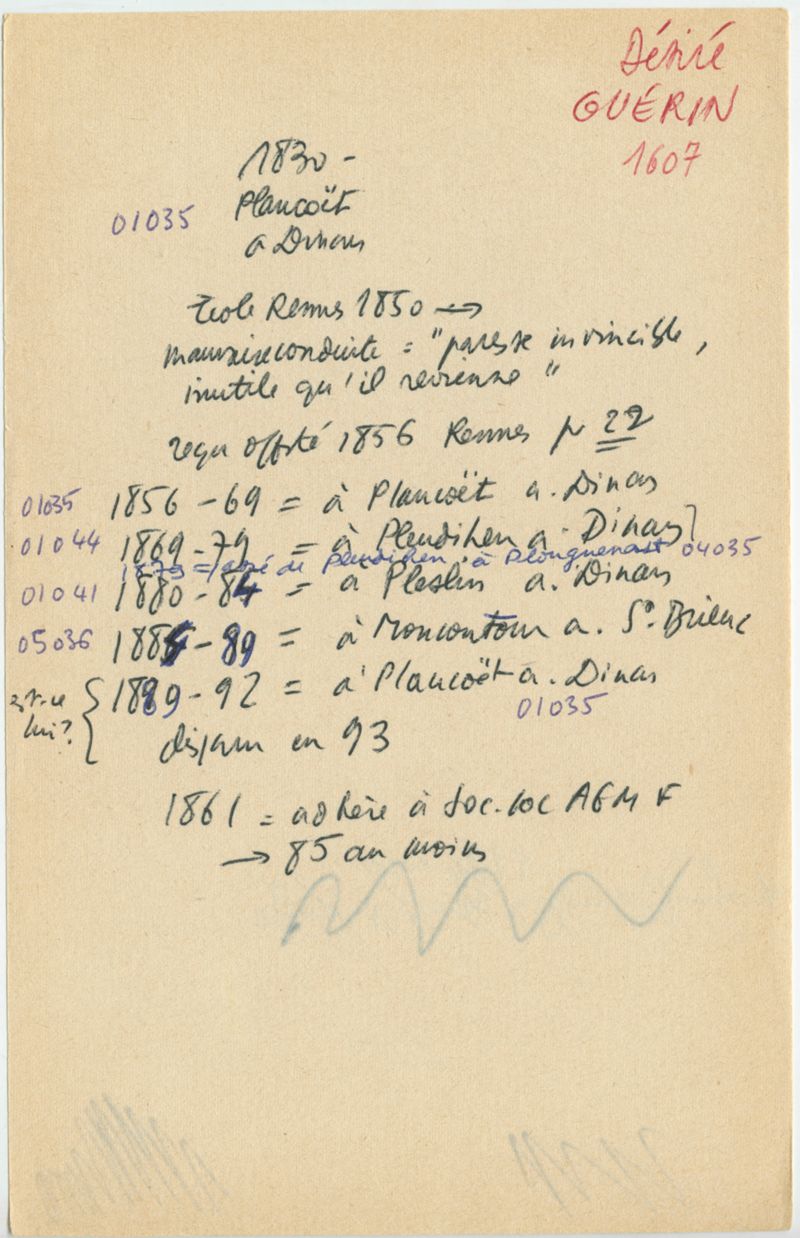 Désiré
GUÉRIN
1607
1830 -
01035 Plancoët
a Dinan
Ecole Rennes 1850 →
mauvaise conduite = "paresse invincible,
inutile qu'il revienne"
reçu offté 1856 Rennes pr 22
01035 1856 - 69 = à Plancoët a. Dinan
01044 1869 - 79 = à Pleudihen a. Dinan
1879 = de Pleudihen à Plouguenast 04035
01041 1880 - 84 = à Pleslin a. Dinan
05036 1884 - 89 = à Moncontour a. St. Brieuc
est-ce lui? { 1889 - 92 = à Plancoët a. Dinan
01035
disparu en 93
1861 = adhère à Soc. loc AGMF
→ 85 au moins